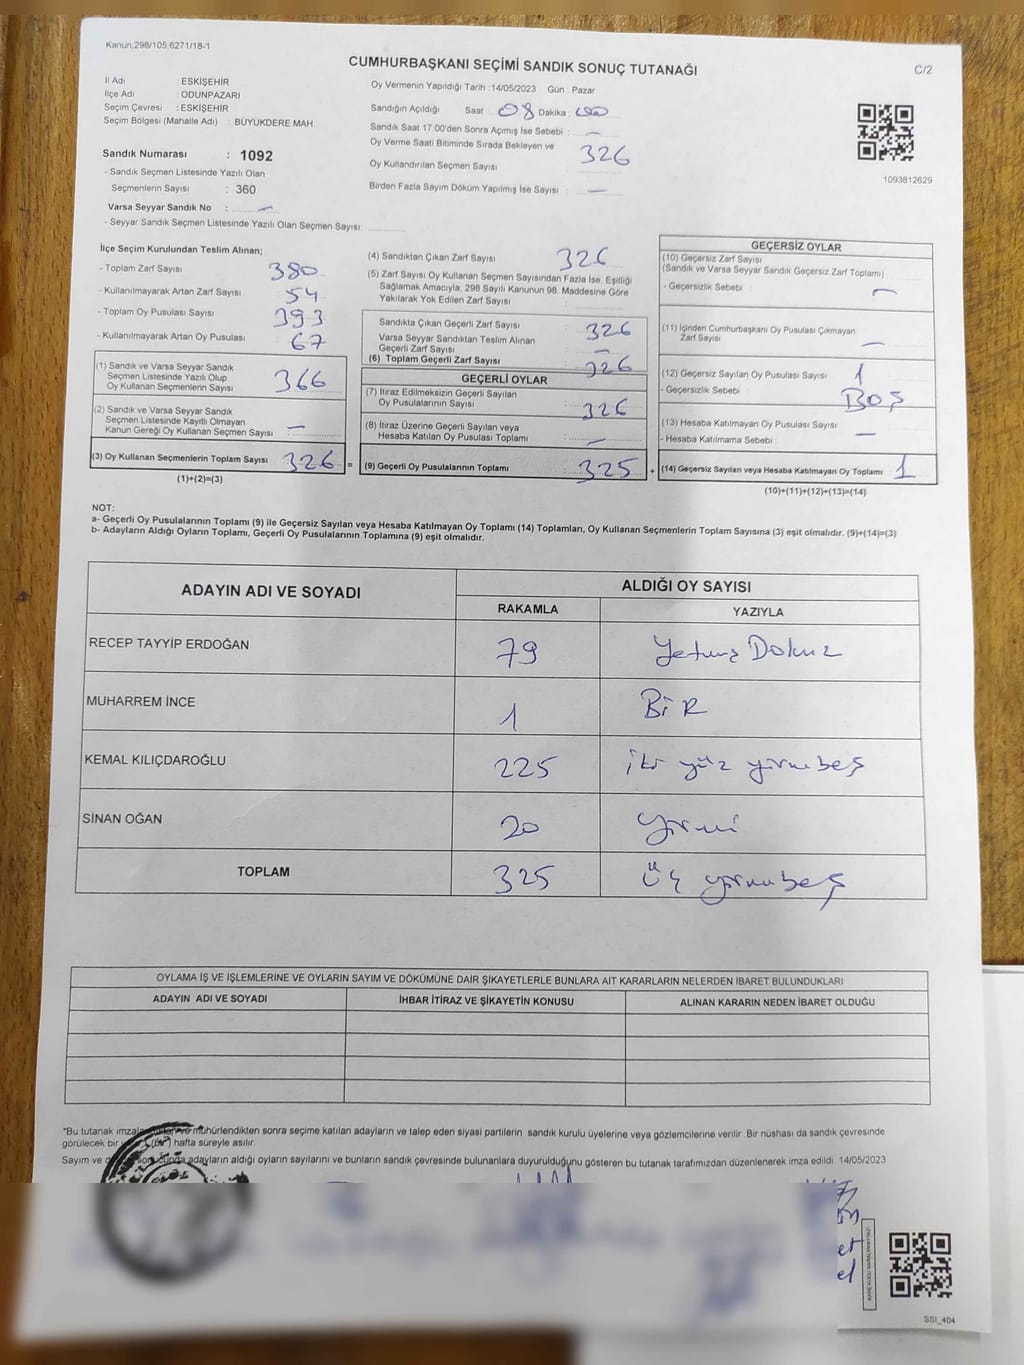 Kanun:298/105;6271/18-1
CUMHURBAŞKANI SEÇİMİ SANDIK SONUÇ TUTANAĞI
C/2
İl Adı : ESKİŞEHİR
İlçe Adı : ODUNPAZARI
Seçim Çevresi : ESKİŞEHİR
Seçim Bölgesi (Mahalle Adı) : BÜYÜKDERE MAH.
Sandık Numarası : 1092
- Sandık Seçmen Listesinde Yazılı Olan
Seçmenlerin Sayısı : 360
Varsa Seyyar Sandık No : –
- Seyyar Sandık Seçmen Listesinde Yazılı Olan Seçmen Sayısı:
Oy Vermenin Yapıldığı Tarih :14/05/2023 Gün : Pazar
Sandığın Açıldığı Saat 08 Dakika : 00
Sandık Saat 17.00'den Sonra Açımış İse Sebebi : –
Oy Verme Saati Bitiminde Sırada Bekleyen ve
Oy Kullandırılan Seçmen Sayısı : 326
Birden Fazla Sayım Döküm Yapılmış İse Sayısı : –
1093812629
İlçe Seçim Kurulundan Teslim Alınan;
- Toplam Zarf Sayısı : 380
- Kullanılmayarak Artan Zarf Sayısı : 54
- Toplam Oy Pusulası Sayısı : 393
- Kullanılmayarak Artan Oy Pusulası : 67
(1) Sandık ve Varsa Seyyar Sandık
Seçmen Listesinde Yazılı Olup
Oy Kullanan Seçmenlerin Sayısı : 366
(2) Sandık ve Varsa Seyyar Sandık
Seçmen Listesinde Kayıtlı Olmayan
Kanun Gereği Oy Kullanan Seçmen Sayısı : –
(3) Oy Kullanan Seçmenlerin Toplam Sayısı : 326 =
(1)+(2)=(3)
(4) Sandıktan Çıkan Zarf Sayısı : 326
(5) Zarf Sayısı Oy Kullanan Seçmen Sayısından Fazla İse, Eşitliği
Sağlamak Amacıyla; 298 Sayılı Kanunun 98. Maddesine Göre
Yakılarak Yok Edilen Zarf Sayısı :
Sandıkta Çıkan Geçerli Zarf Sayısı : 326
Varsa Seyyar Sandıktan Teslim Alınan
Geçerli Zarf Sayısı : –
(6) Toplam Geçerli Zarf Sayısı : 326
GEÇERLİ OYLAR
(7) İtiraz Edilmeksizin Geçerli Sayılan
Oy Pusulalarının Sayısı : 326
(8) İtiraz Üzerine Geçerli Sayılan veya
Hesaba Katılan Oy Pusulası Toplamı : –
(9) Geçerli Oy Pusulalarının Toplamı : 325 +
GEÇERSİZ OYLAR
(10) Geçersiz Zarf Sayısı
(Sandık ve Varsa Seyyar Sandık Geçersiz Zarf Toplamı)
- Geçersizlik Sebebi : –
(11) İçinden Cumhurbaşkanı Oy Pusulası Çıkmayan
Zarf Sayısı : –
(12) Geçersiz Sayılan Oy Pusulası Sayısı : 1
- Geçersizlik Sebebi : BOŞ
(13) Hesaba Katılmayan Oy Pusulası Sayısı : –
- Hesaba Katılmama Sebebi :
(14) Geçersiz Sayılan veya Hesaba Katılmayan Oy Toplamı : 1
(10)+(11)+(12)+(13)=(14)
NOT:
a- Geçerli Oy Pusulalarının Toplamı (9) ile Geçersiz Sayılan veya Hesaba Katılmayan Oy Toplamı (14) Toplamları, Oy Kullanan Seçmenlerin Toplam Sayısına (3) eşit olmalıdır. (9)+(14)=(3)
b- Adayların Aldığı Oyların Toplamı, Geçerli Oy Pusulalarının Toplamına (9) eşit olmalıdır.
ADAYIN ADI VE SOYADI ALDIĞI OY SAYISI
RAKAMLA YAZIYLA
RECEP TAYYİP ERDOĞAN 79 Yetmiş Dokuz
MUHARREM İNCE 1 BİR
KEMAL KILIÇDAROĞLU 225 iki yüz yirmi beş
SİNAN OĞAN 20 yirmi
TOPLAM 325 Üç yirmi beş
OYLAMA İŞ VE İŞLEMLERİNE VE OYLARIN SAYIM VE DÖKÜMÜNE DAİR ŞİKAYETLERLE BUNLARA AİT KARARLARIN NELERDEN İBARET BULUNDUKLARI
ADAYIN ADI VE SOYADI İHBAR İTİRAZ VE ŞİKAYETİN KONUSU ALINAN KARARIN NEDEN İBARET OLDUĞU
*Bu tutanak ve mühürlendikten sonra seçime katılan adayların ve talep eden siyasi partilerin sandık kurulu üyelerine veya gözlemcilerine verilir. Bir nüshası da sandık çevresinde
görülecek bir (bir) hafta süreyle asılır.
Sayım ve adayların aldığı oyların sayılarını ve bunların sandık çevresinde bulunanlara duyurulduğunu gösteren bu tutanak tarafımızdan düzenlenerek imza edildi. 14/05/2023
SSI_404